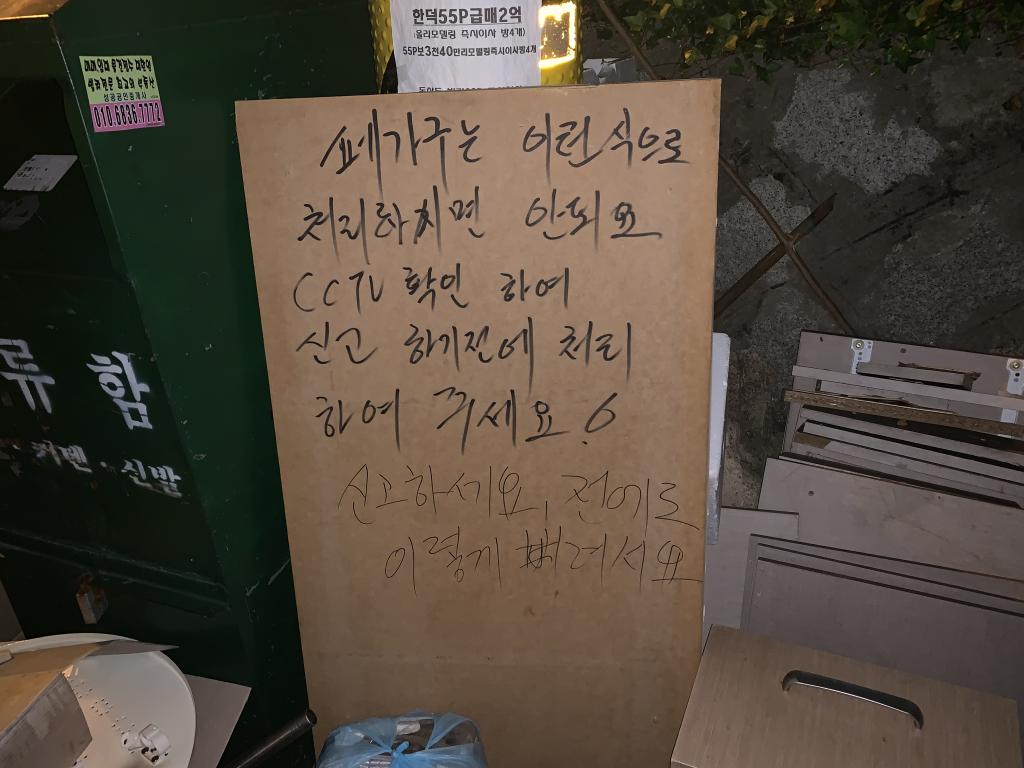 한덕55P급매2억
(올리모델링 즉시이사 방4개)
55P보3천40만리모델링즉시이사방4개
성공공인중개사
010.6836.7772
류함
신발
폐가구는 이런식으로
처리하시면 안되요
CCTV 확인 하여
신고 하기전에 처리
하여 주세요.
신고하세요, 전에도
이렇게 뻐려서요